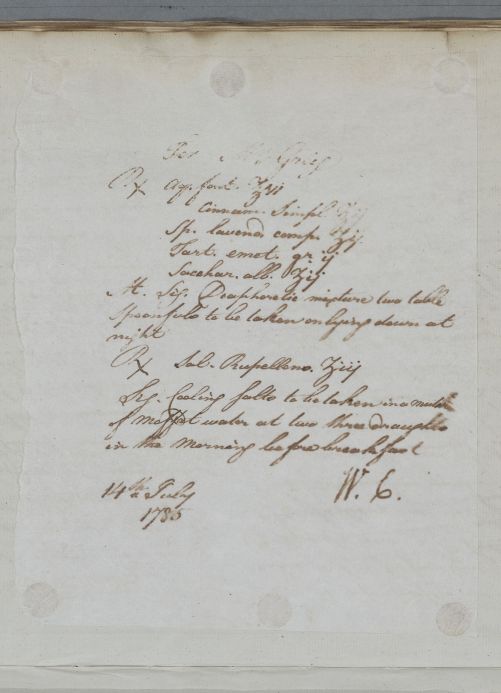 For Mr. Greig
Rx Aq. font. ℥vij
Cinnam. Simpl. ℥ij
Sp. lavend comp. ʒij
Tart. emet. gr ij
Sacchar. alb. ʒij
M. Sig. Diaphoretic mixture two table
spoonfuls to be taken on lying down at
night
Rx Sal. Rupellens. ʒiij
Sig. Cooling salts to be taken in a mutch
of moffat water at two three draughts
in the Morning before breakfast
14th July
1785
W. C.